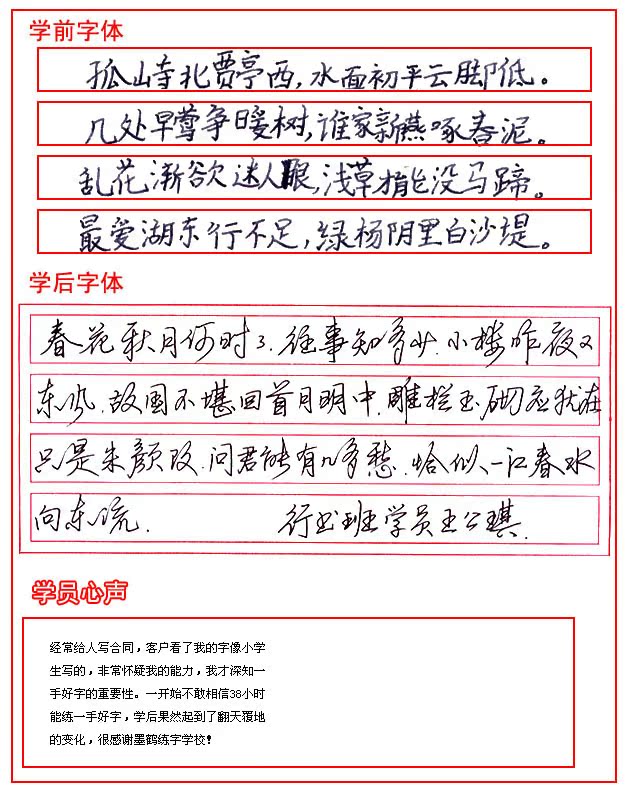 学前字体
孤山寺北贾亭西,水面初平云脚低。
几处早莺争暖树,谁家新燕啄春泥。
乱花渐欲迷人眼,浅草才能没马蹄。
最爱湖东行不足,绿杨阴里白沙堤。
学后字体
春花秋月何时了.往事知多少.小楼昨夜又
东风.故国不堪回首月明中.雕栏玉砌应犹在
只是朱颜改.问君能有几多愁.恰似一江春水
向东流. 行书班学员王公琪.
学员心声
经常给人写合同，客户看了我的字像小学
生写的，非常怀疑我的能力，我才深知一
手好字的重要性。一开始不敢相信38小时
能练一手好字，学后果然起到了翻天覆地
的变化，很感谢墨鹤练字学校！